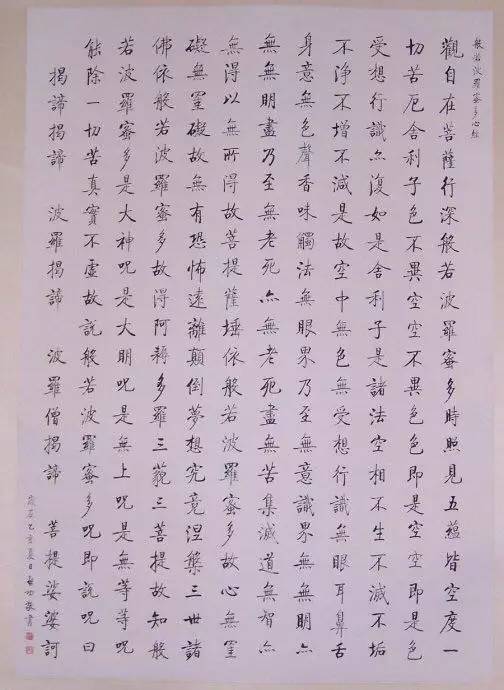 般若波羅蜜多心經
觀自在菩薩行深般若波羅蜜多時照見五蘊皆空度一
切苦厄舍利子色不異空空不異色色即是空空即是色
受想行識亦復如是舍利子是諸法空相不生不滅不垢
不淨不增不減是故空中無色無受想行識無眼耳鼻舌
身意無色聲香味觸法無眼界乃至無意識界無無明亦
無無明盡乃至無老死亦無老死盡無苦集滅道無智亦
無得以無所得故菩提薩埵依般若波羅蜜多故心無罣
礙無罣礙故無有恐怖遠離顛倒夢想究竟涅槃三世諸
佛依般若波羅蜜多故得阿耨多羅三藐三菩提故知般
若波羅蜜多是大神呪是大明呪是無上呪是無等等呪
能除一切苦真實不虛故說般若波羅蜜多呪即說呪曰
揭諦揭諦 波羅揭諦 波羅僧揭諦 菩提娑婆訶
乙亥夏日啟功敬書